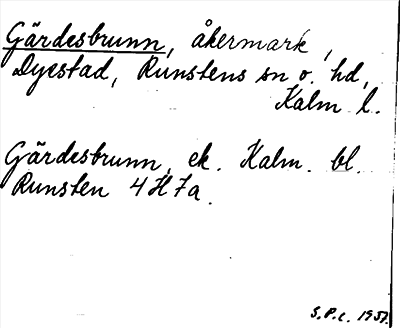 Gärdesbrunn, åkermark,
Dyestad, Runstens sn o. hd,
Kalm l.
Gärdesbrunn, ek. Kalm. bl.
Runsten 4H7a.
S.P.c. 1957.